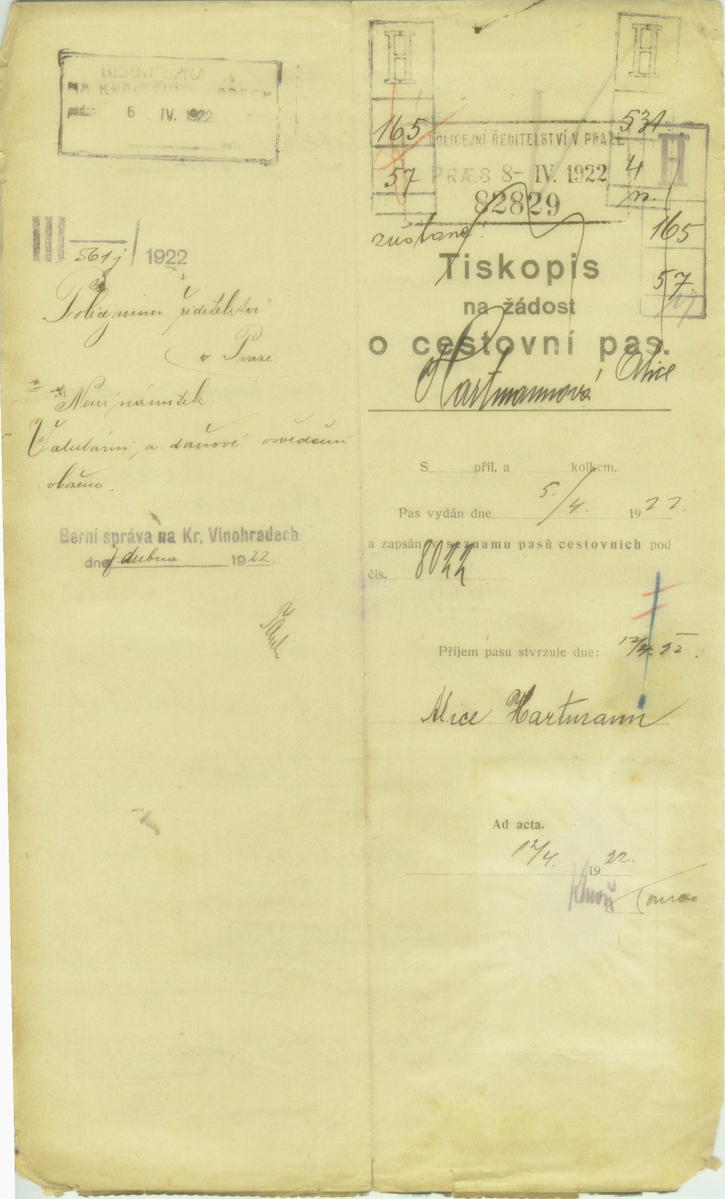 6 IV. 1922
III 561j / 1922
Policejnímu ředitelství
v Praze.
Není námitek
Valutární a daňové osvědčení
vloženo.
Berní správa na Kr. Vinohradech
dne 7 dubna 1922.
H
165
57
H
531
4
n.
H
165
57
POLICEJNÍ ŘEDITELSTVÍ V PRAZE
PRÆS 8- IV. 1922
82829
zůstane!
Tiskopis
na žádost
o cestovní pas.
Hartmannová Alice
S příl. a kolkem.
Pas vydán dne 5/4. 1922
a zapsán v seznamu pasů cestovních pod
čís. 8022
Příjem pasu stvrzuje dne:
Alice Hartmann
Ad acta.
12/4. 1922.